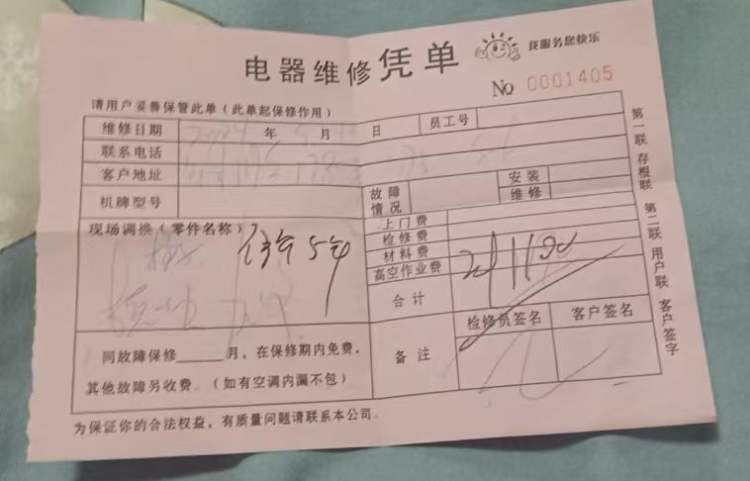 电器维修凭单
我服务您快乐
No 0001405
请用户妥善保管此单（此单起保修作用）
维修日期 年 月 日 员工号
联系电话
客户地址
机牌型号 故障情况 安装 维修
现场调换（零件名称） 上门费
保5年
检修费
材料费
高空作业费
合计
同故障保修______月，在保修期内免费，
其他故障另收费。（如有空调内漏不包）
备注 检修员签名 客户签名
为保证你的合法权益，有质量问题请联系本公司。
第一联 存根联 第二联 用户联 客户签字